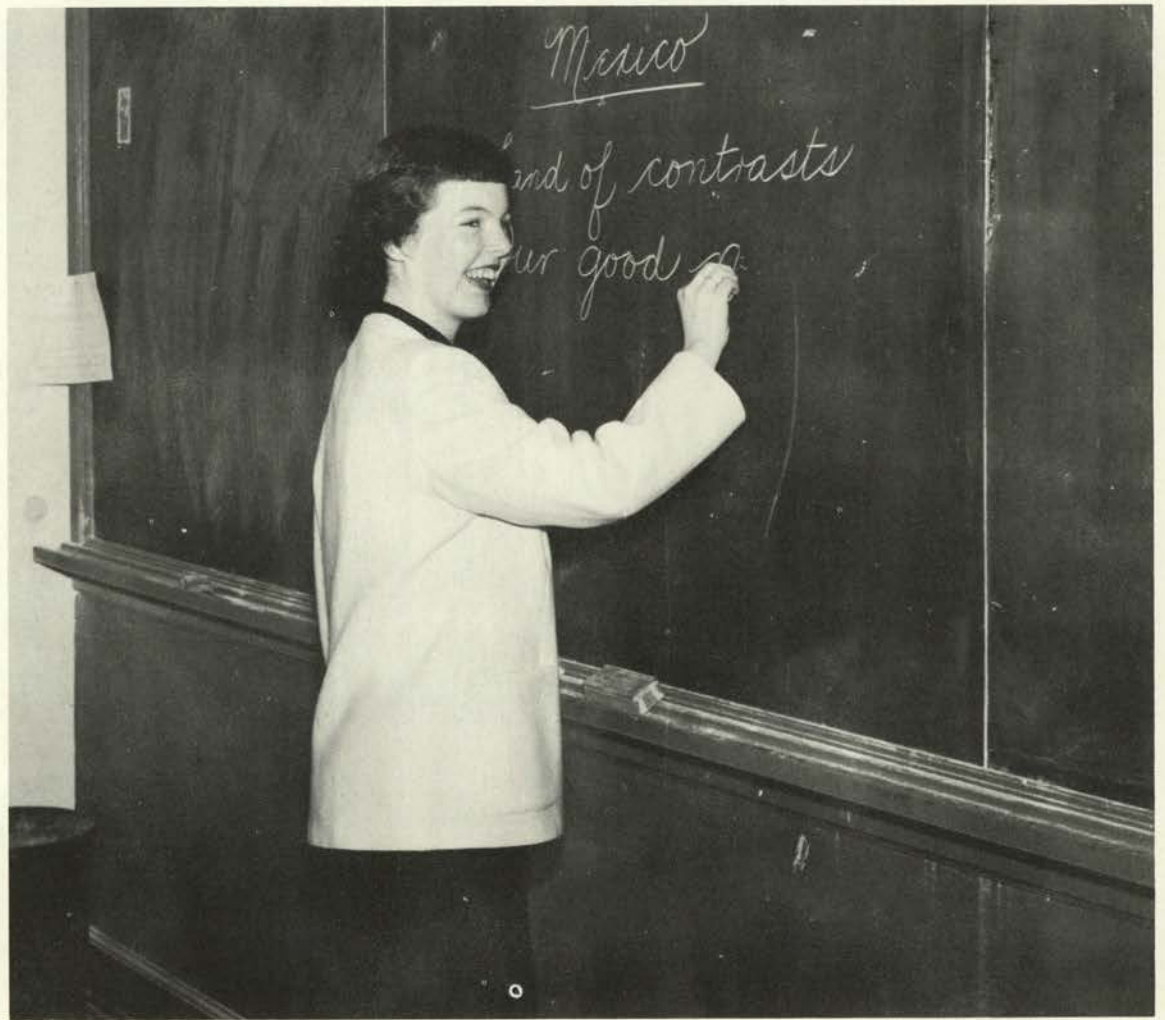 Mexico
and of contrasts
ur good n